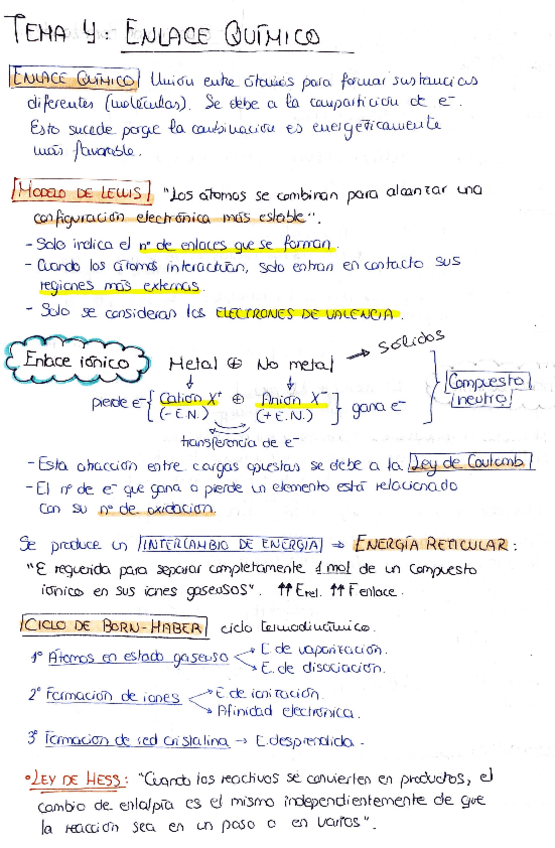 TEMA 4: ENLACE QUÍMICO
ENLACE QUÍMICO Unión entre átomos para formar sustancias
diferentes (moléculas). Se debe a la compartición de e⁻.
Esto sucede porqe la combinación es energéticamente
más favorable.
MODELO DE LEWIS "Los átomos se combinan para alcanzar una
configuración electrónica más estable".
- Solo indica el nº de enlaces que se forman.
- Cuando los átomos interactúan, solo entran en contacto sus
regiones más externas.
- Solo se consideran los ELECTRONES DE VALENCIA.
Enlace iónico Metal ⊕ No metal → sólidos
pierde e⁻ { Catión X⁺ ⊕ Anión X⁻ } gana e⁻
(- E.N.) (+ E.N.)
Compuesto
neutro
transferencia de e⁻
- Esta atracción entre cargas opuestas se debe a la Ley de Coulomb.
- El nº de e⁻ que gana o pierde un elemento está relacionado
con su nº de oxidación.
Se produce un INTERCAMBIO DE ENERGÍA ⇒ ENERGÍA RETICULAR:
"E requerida para separar completamente 1 mol de un compuesto
iónico en sus iones gaseosos". ↑↑ E ret. ↑↑ F enlace.
CICLO DE BORN-HABER ciclo termodinámico.
1º Átomos en estado gaseoso → E. de vaporización.
→ E. de disociación.
2º Formación de iones → E. de ionización.
→ Afinidad electrónica.
3º Formación de red cristalina → E. desprendida.
• LEY DE HESS: "Cuando los reactivos se convierten en productos, el
cambio de entalpía es el mismo independientemente de que
la reacción sea en un paso o en varios".